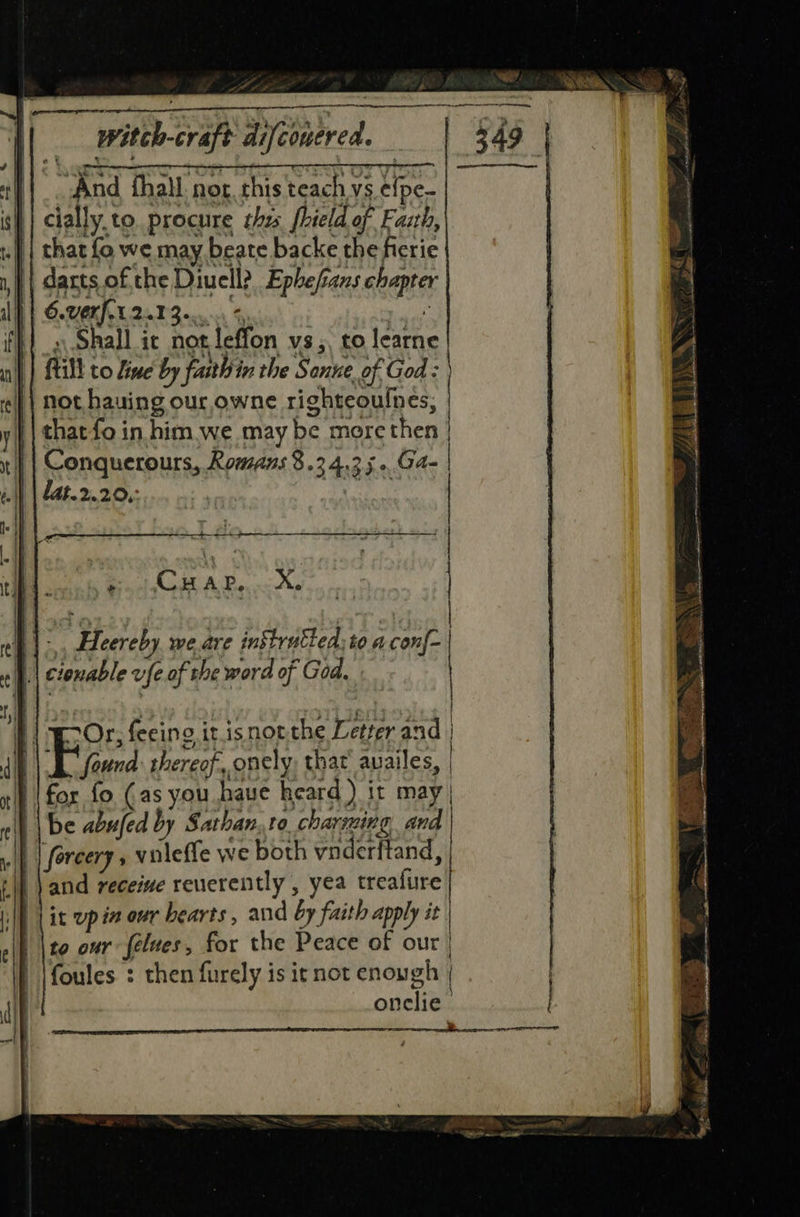 witch-craft diſcouered. 349
And ſhall not this teach vs eſpe-
cially to procure this ſhield of Faith,
that ſo we may beate backe the fierie
darts of the Diuell? Epheſians chapter
6.verſ.12.13.
Shall it not leſſon vs, to learne
ſtill to liue by faith in the Sonne of God:
not hauing our owne righteouſnes,
that ſo in him we may be more then
Conquerours, Romans 8.34.35. Ga-
lat.2.20.
CHAP. X.
Heereby we are inſtructed, to a conſ-
cionable vſe of the word of God.
FOr, ſeeing it is not the Letter and
ſound thereof, onely, that auailes,
for ſo (as you haue heard) it may
be abuſed by Sathan, to charming and
ſorcery, vnleſſe we both vnderſtand,
and receiue reuerently, yea treaſure
it vp in our hearts, and by faith apply it
to our ſelues, for the Peace of our
ſoules: then ſurely is it not enough
onelie